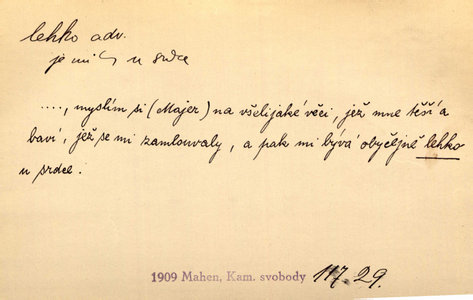 lehko adv.
je mi ~ u srdce
...., myslím si (Majer) na všelijaké věci, jež mne těší a
baví, jež se mi zamlouvaly, a pak mi bývá obyčejně lehko
u srdce.
1909 Mahen, Kam. svobody 117.29.